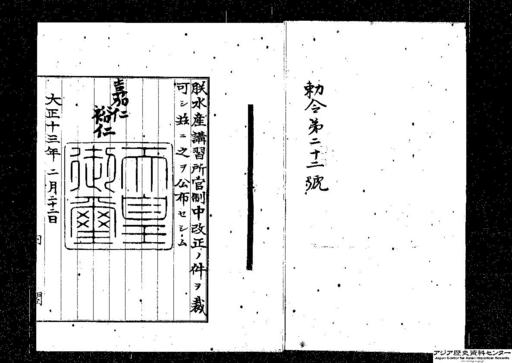 勅令第二十二號
朕水産講習所官制中改正ノ件ヲ裁
可シ茲ニ之ヲ公布セシム
嘉仁
裕仁
天皇
御璽
大正十三年二月二十二日
内閣
アジア歴史資料センター
Japan Center for Asian Historical Records